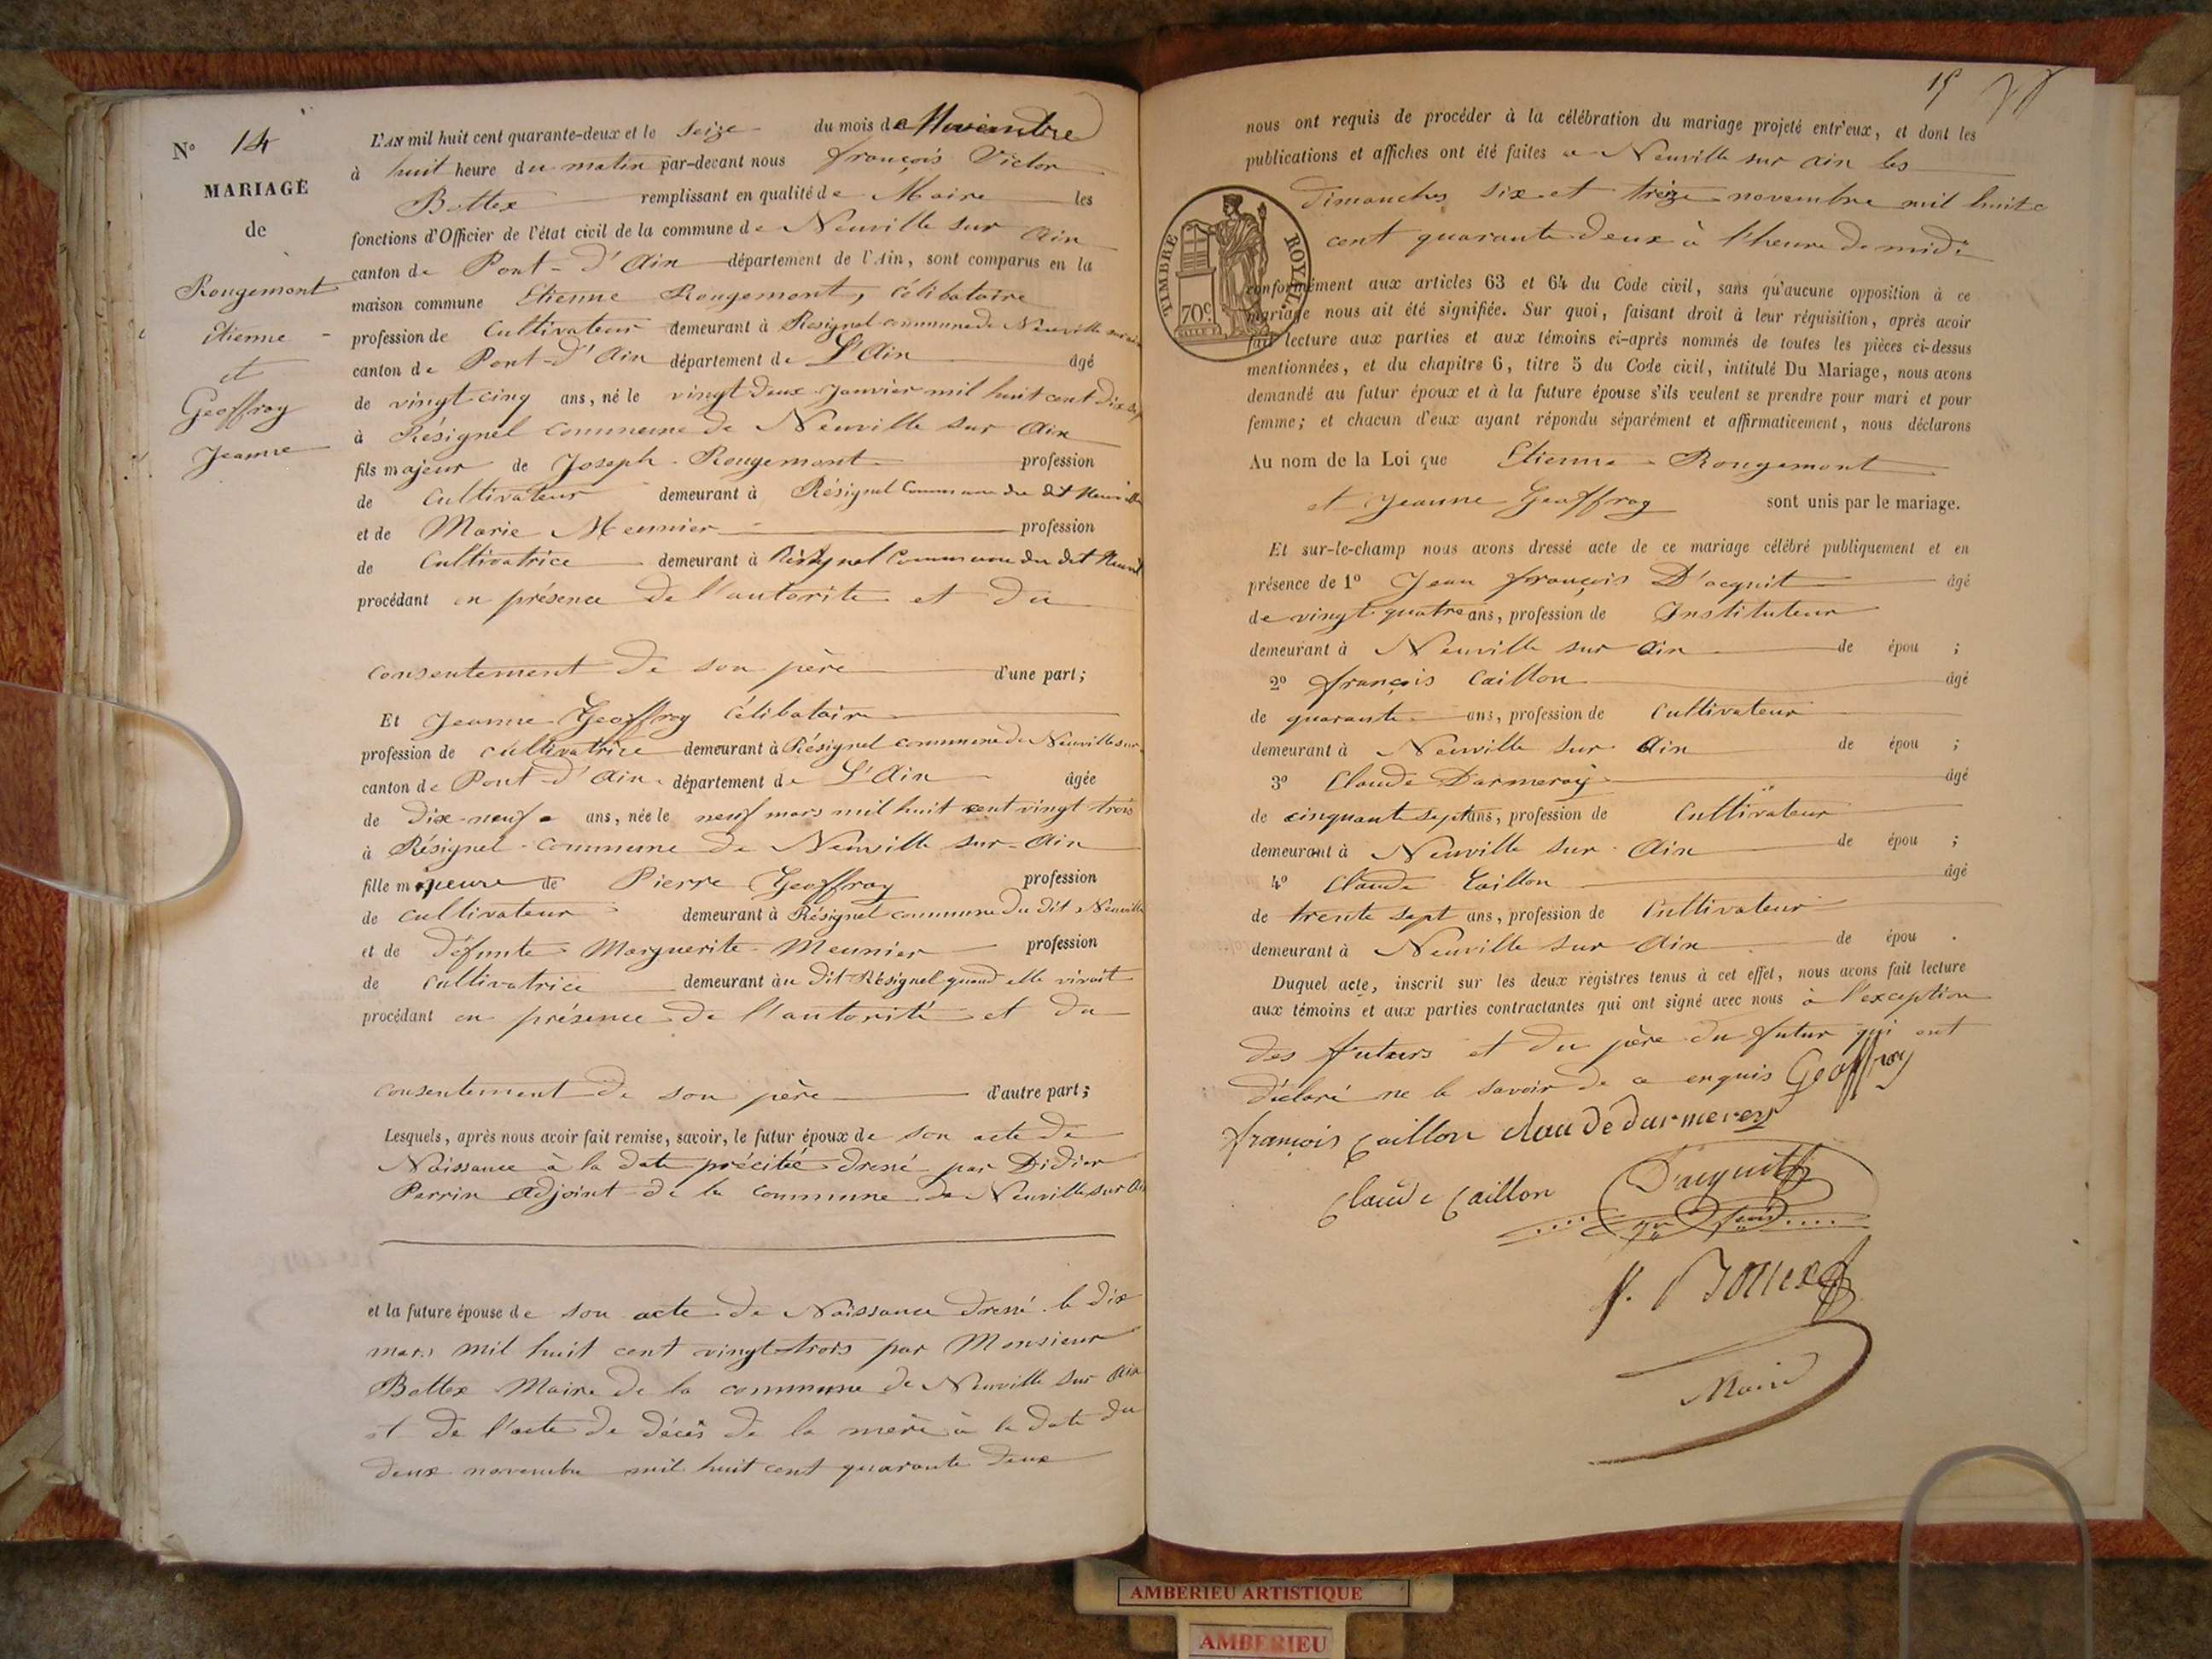 N° 14
MARIAGE
de
Rougemont
Etienne
et
Geoffray
Jeanne
L'AN mil huit cent quarante-deux et le seize du mois de Novembre
à huit heure du matin par-devant nous françois Victor
Bottex remplissant en qualité de Maire les
fonctions d'Officier de l'état civil de la commune de Neuville sur Ain
canton de Pont-d'Ain département de l'Ain, sont comparus en la
maison commune Etienne Rougemont, célibataire
profession de Cultivateur demeurant à Résignel commune de Neuville sur ain
canton de Pont-d'Ain département de L'Ain âgé
de vingt cinq ans, né le vingt deux Janvier mil huit cent dix sept
à Résignel commune de Neuville sur Ain
fils majeur de Joseph Rougemont profession
de Cultivateur demeurant à Résignel Commune du dit Neuville
et de Marie Meunier profession
de Cultivatrice demeurant à Résignel Commune du dit Neuvil
procédant en présence de l'autorité et du
consentement de son père d'une part;
Et Jeanne Geoffray Célibataire
profession de cultivatrice demeurant à Résignel commune de Neuville sur
canton de Pont-d'Ain département de L'Ain âgée
de dix-neuf ans, née le neuf mars mil huit cent vingt trois
à Résignel commune de Neuville sur-Ain
fille mineure de Pierre Geoffray profession
de cultivateur demeurant à Résignel commune du dit Neuville
et de défunte Marguerite Meunier profession
de Cultivatrice demeurant au dit Résignel quand elle vivait
procédant en présence de l'autorité et du
consentement de son père d'autre part;
Lesquels, après nous avoir fait remise, savoir, le futur époux de son acte de
Naissance à la date précitée dressé par Didier
Perrin Adjoint de la commune de Neuville sur Ain
et la future épouse de son acte de Naissance dressé le dix
mars mil huit cent vingt-trois par Monsieur
Bottex Maire de la commune de Neuville sur Ain
et de l'acte de décès de la mère à la date du
deux novembre mil huit cent quarante deux
15
nous ont requis de procéder à la célébration du mariage projeté entr'eux, et dont les
publications et affiches ont été faites a Neuville sur Ain les
dimanches six et treize novembre mil huit
cent quarante deux à l'heure de midi
TIMBRE ROYAL
70c
conformément aux articles 63 et 64 du Code civil, sans qu'aucune opposition à ce
mariage nous ait été signifiée. Sur quoi, faisant droit à leur réquisition, après avoir
fait lecture aux parties et aux témoins ci-après nommés de toutes les pièces ci-dessus
mentionnées, et du chapitre 6, titre 5 du Code civil, intitulé Du Mariage, nous avons
demandé au futur époux et à la future épouse s'ils veulent se prendre pour mari et pour
femme; et chacun d'eux ayant répondu séparément et affirmativement, nous déclarons
Au nom de la Loi que Etienne Rougemont
et Jeanne Geoffray sont unis par le mariage.
Et sur-le-champ nous avons dressé acte de ce mariage célébré publiquement et en
présence de 1° Jean françois D'acquit âgé
de vingt quatre ans, profession de Instituteur
demeurant à Neuville sur Ain de épou ;
2° françois Caillon âgé
de quarante ans, profession de Cultivateur
demeurant à Neuville sur Ain de épou ;
3° Claude Darmeray âgé
de cinquante sept ans, profession de Cultivateur
demeurant à Neuville sur Ain de épou ;
4° Claude Caillon âgé
de trente sept ans, profession de Cultivateur
demeurant à Neuville sur Ain de épou .
Duquel acte, inscrit sur les deux régistres tenus à cet effet, nous avons fait lecture
aux témoins et aux parties contractantes qui ont signé avec nous à l'exception
des futurs et du père du futur qui ont
déclaré ne le savoir de ce enquis Geoffray
françois Caillon claude darmerey
Claude Caillon D'acquit
Bottex
Maire
AMBERIEU ARTISTIQUE
AMBERIEU